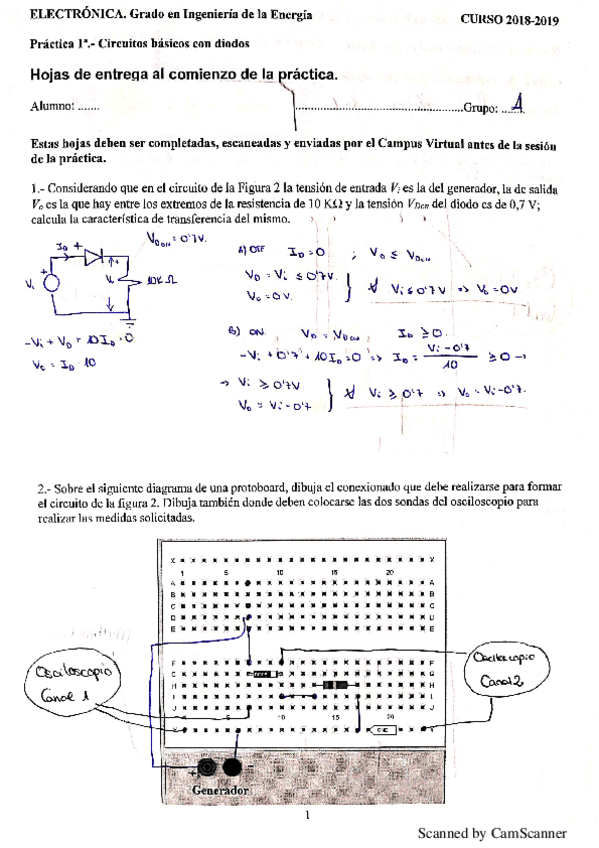 ELECTRÓNICA. Grado en Ingeniería de la Energía CURSO 2018-2019
Práctica 1ª.- Circuitos básicos con diodos
Hojas de entrega al comienzo de la práctica.
Alumno: ....... Grupo: ... 1
Estas hojas deben ser completadas, escaneadas y enviadas por el Campus Virtual antes de la sesión
de la práctica.
1.- Considerando que en el circuito de la Figura 2 la tensión de entrada Vi es la del generador, la de salida
Vo es la que hay entre los extremos de la resistencia de 10 KΩ y la tensión VDon del diodo es de 0,7 V;
calcula la característica de transferencia del mismo.
VDON = 0'7V.
ID +
Vi
Vo
10K Ω
-Vi + VD + 10ID = 0
Vo = ID · 10
A) OFF ID = 0 ; VD ≤ VDON
VD = Vi ≤ 0'7V
Vo = 0V.
Vi ≤ 0'7V => Vo = 0V
B) ON. VD = VDON ID ≥ 0.
-Vi + 0'7 + 10ID = 0 => ID = Vi - 0'7 / 10 ≥ 0 →
→ Vi ≥ 0'7V
Vo = Vi - 0'7.
Vi ≥ 0'7 => Vo = Vi - 0'7.
2.- Sobre el siguiente diagrama de una protoboard, dibuja el conexionado que debe realizarse para formar
el circuito de la figura 2. Dibuja también donde deben colocarse las dos sondas del osciloscopio para
realizar las medidas solicitadas.
X X
1 5 10 15 20
A A
B B
C C
D D
E E
F F
G G
H H
I I
J J
5 10 15 20
Y
Osciloscopio
Canal 1
Osciloscopio
Canal 2
GND
+
Generador
1
Scanned by CamScanner